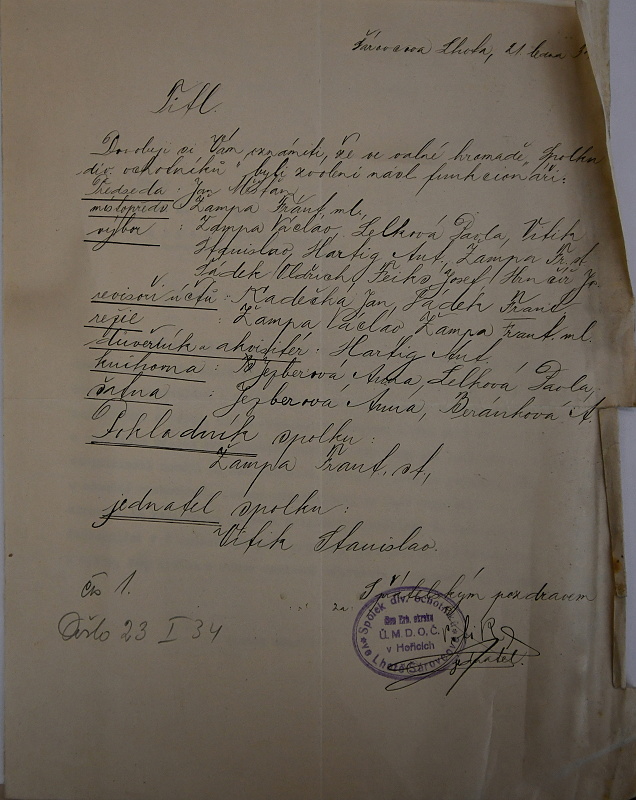 Šárovcova Lhota, 21. ledna
Titl.
Dovoluji si Vám oznámiti, že ve valné hromadě „Spolku
div. ochotníků" byli zvoleni násl. funkcionáři:
Předseda : Jan Měšťan
místopředs. Žampa Frant. ml.,
výbor : Žampa Václav, Lelková Pavla, Vitík
Stanislav, Hartig Ant., Žampa Fr. st.
Sádek Oldřich, Josef, Hrnčíř Jos.
revisoři účtů : Kadečka Jan, Sádek Frant.
režie : Žampa Václav, Žampa Frant. ml.
důvěrník a akvisitér : Hartig Ant.
knihovna : Jezberová Anna, Lelková Pavla,
šatna : Jezberová Anna, Beránková A.
Pokladník spolku :
Žampa Frant. st.,
jednatel spolku :
Vitík Stanislav.
čís 1.
S přátelským pozdravem
za
Došlo 23 I 34
Spolek div. ochotníků
člen Krb. okrsku
Ú. M. D. O. Č.
v Hořicích
ve Lhotě Šárovcově
jednatel.